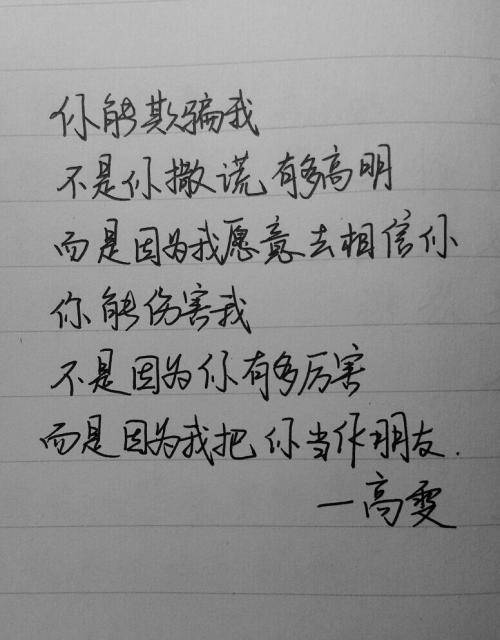 你能欺骗我
不是你撒谎有多高明
而是因为我愿意去相信你
你能伤害我
不是因为你有多厉害
而是因为我把你当作朋友.
—高雯